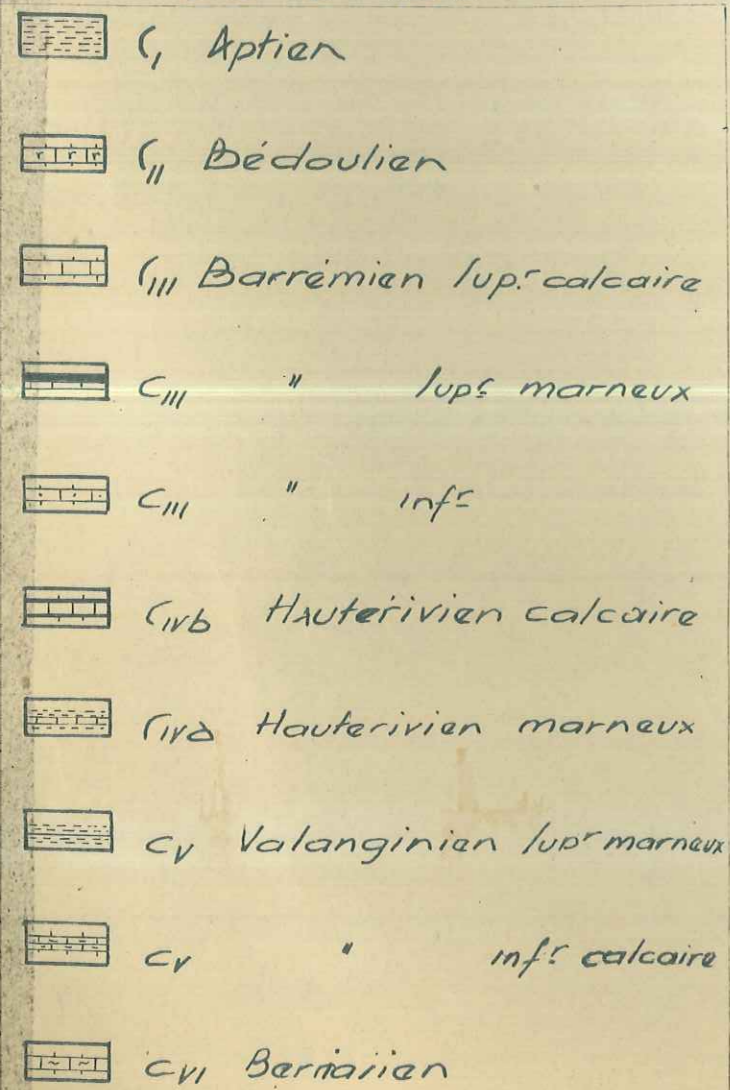 C_I Aptien
C_II Bédoulien
C_III Barrémien supr calcaire
C_III " supr marneux
C_III " infr
C_IVb Hauterivien calcaire
C_IVa Hauterivien marneux
C_V Valanginien supr marneux
C_V " infr calcaire
C_VI Berriasien